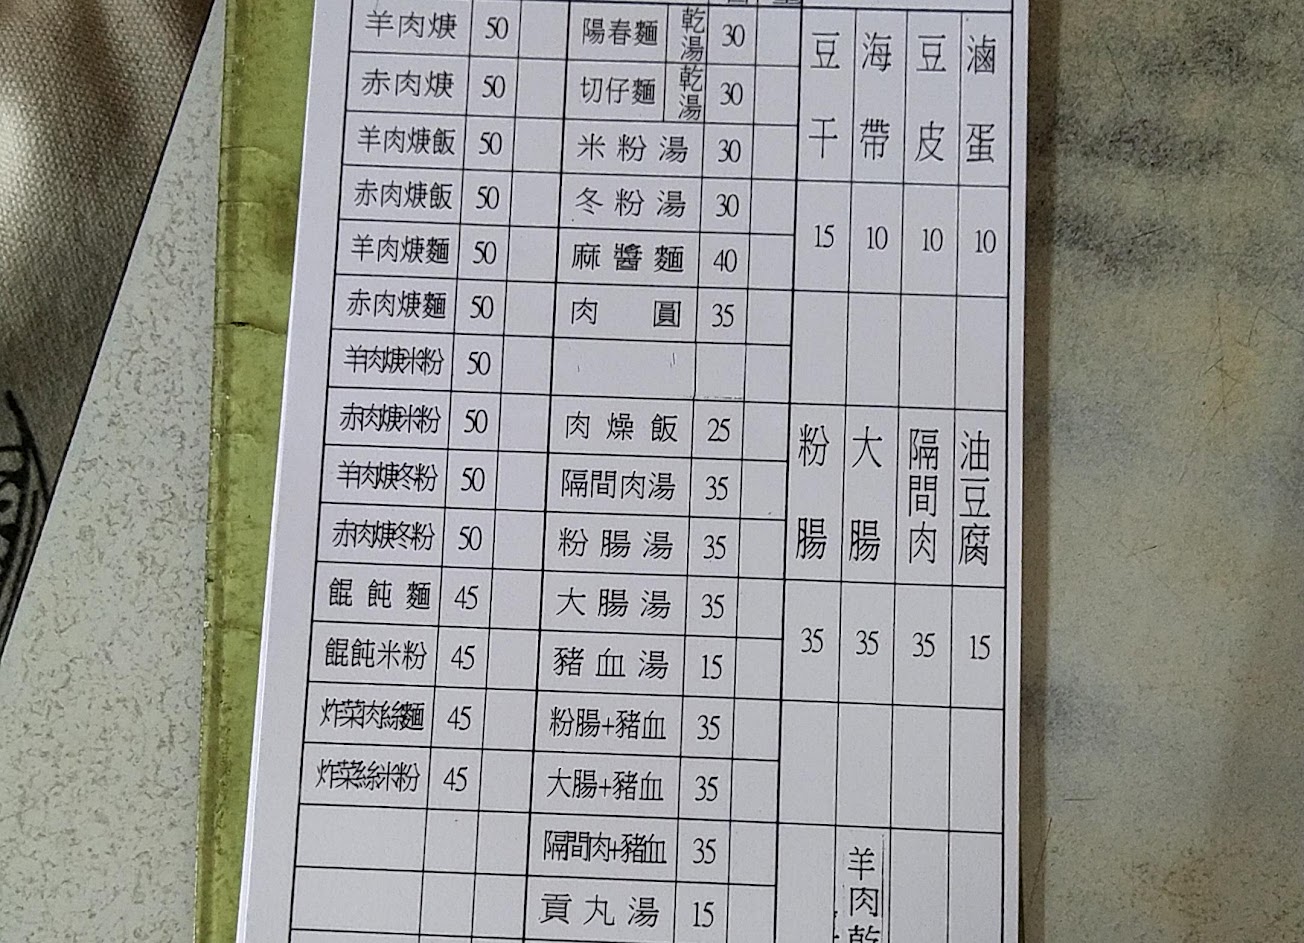 羊肉焿 50
赤肉焿 50
羊肉焿飯 50
赤肉焿飯 50
羊肉焿麵 50
赤肉焿麵 50
羊肉焿米粉 50
赤肉焿米粉 50
羊肉焿冬粉 50
赤肉焿冬粉 50
餛飩麵 45
餛飩米粉 45
炸菜肉絲麵 45
炸菜絲米粉 45
陽春麵 乾湯 30
切仔麵 乾湯 30
米粉湯 30
冬粉湯 30
麻醬麵 40
肉圓 35
肉燥飯 25
隔間肉湯 35
粉腸湯 35
大腸湯 35
豬血湯 15
粉腸+豬血 35
大腸+豬血 35
隔間肉+豬血 35
貢丸湯 15
豆干 15
海帶 10
豆皮 10
滷蛋 10
粉腸 35
大腸 35
隔間肉 35
油豆腐 15
羊肉乾